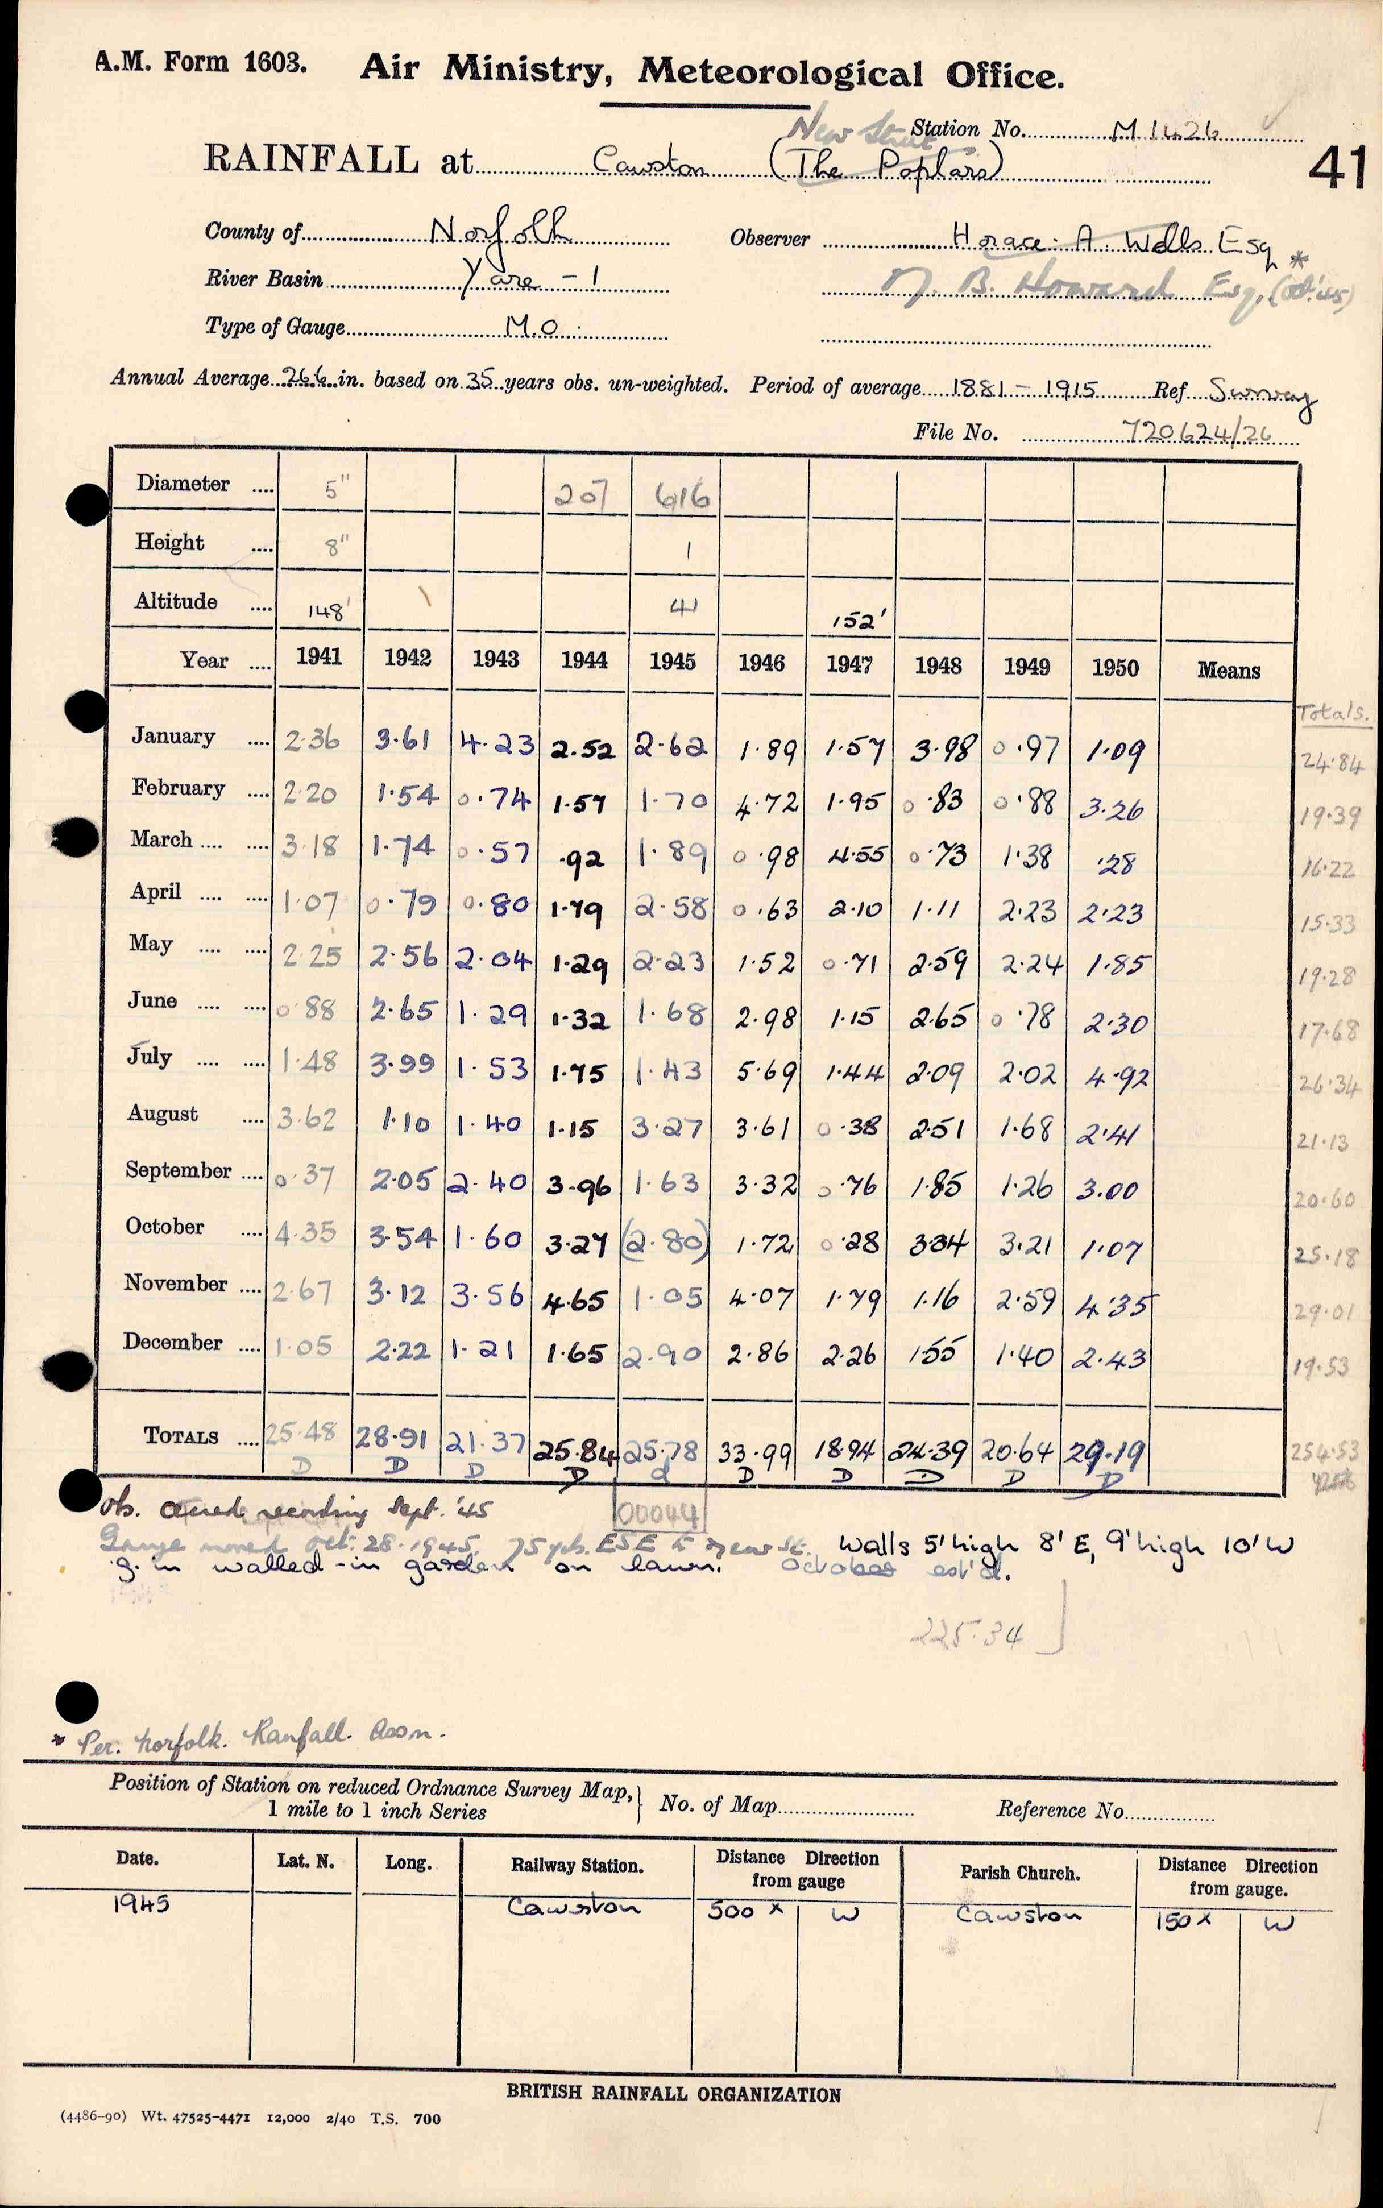 A.M. Form 1603. Air Ministry, Meteorological Office.
New Street Station No. M 1426
RAINFALL at Cawston (The Poplars)
41
County of Norfolk Observer Horace. A. Wells Esq *
River Basin Yare - 1 B. Howard Esq. (Oct. '45)
Type of Gauge M.O.
Annual Average 26.6 in. based on 35 years obs. un-weighted. Period of average 1881 - 1915 Ref Survey
File No. 720624/26
Diameter .... 5" 207 616
Height .... 8" 1
Altitude .... 148' 41 152'
Year .... 1941 1942 1943 1944 1945 1946 1947 1948 1949 1950 Means
Totals.
January .... 2.36 3.61 4.23 2.52 2.62 1.89 1.57 3.98 0.97 1.09 24.84
February .... 2.20 1.54 0.74 1.57 1.70 4.72 1.95 0.83 0.88 3.26 19.39
March .... .... 3.18 1.74 0.57 .92 1.89 0.98 4.55 0.73 1.38 .28 16.22
April .... .... 1.07 0.79 0.80 1.79 2.58 0.63 2.10 1.11 2.23 2.23 15.33
May .... .... 2.25 2.56 2.04 1.29 2.23 1.52 0.71 2.59 2.24 1.85 19.28
June .... .... 0.88 2.65 1.29 1.32 1.68 2.98 1.15 2.65 0.78 2.30 17.68
July .... .... 1.48 3.99 1.53 1.75 1.43 5.69 1.44 2.09 2.02 4.92 26.34
August .... 3.62 1.10 1.40 1.15 3.27 3.61 0.38 2.51 1.68 2.41 21.13
September .... 0.37 2.05 2.40 3.96 1.63 3.32 0.76 1.85 1.26 3.00 20.60
October .... 4.35 3.54 1.60 3.27 (2.80) 1.72 0.28 3.34 3.21 1.07 25.18
November .... 2.67 3.12 3.56 4.65 1.05 4.07 1.79 1.16 2.59 4.35 29.01
December .... 1.05 2.22 1.21 1.65 2.90 2.86 2.26 1.55 1.40 2.43 19.53
TOTALS .... 25.48 28.91 21.37 25.84 25.78 33.99 18.94 24.39 20.64 29.19 254.53
D D D D d D D D D D
ob. ceased recording Sept. '45 00044
Gauge moved Oct. 28. 1945. 75 yds. ESE to New St. Walls 5' high 8' E, 9' high 10' W
g. in walled-in garden on lawn. October est'd.
225.34 ]
* Per. Norfolk. Rainfall. Assn.
Position of Station on reduced Ordnance Survey Map, 1 mile to 1 inch Series } No. of Map Reference No.
Date. Lat. N. Long. Railway Station. Distance Direction from gauge Parish Church. Distance Direction from gauge.
1945 Cawston 500 x W Cawston 150 x W
BRITISH RAINFALL ORGANIZATION
(4486-90) Wt. 47525-4471 12,000 2/40 T.S. 700